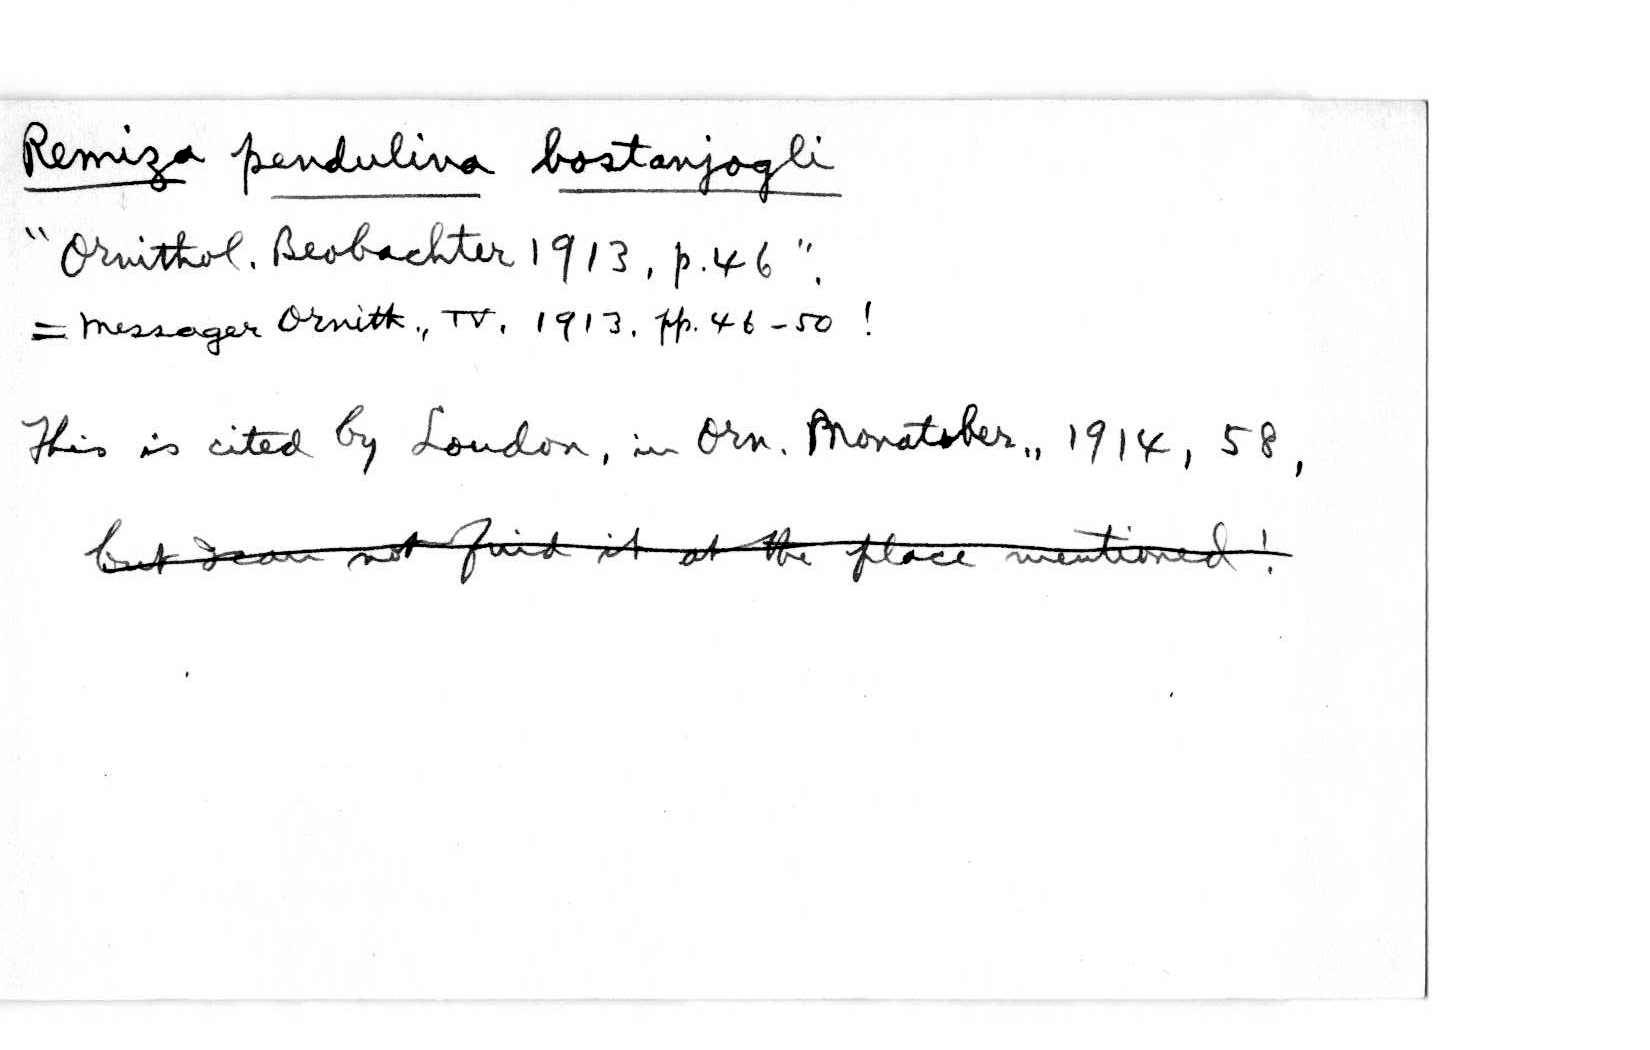 Remiza pendulina bostanjogli
"Ornithol. Beobachter 1913, p. 46".
= Messager Ornith., IV. 1913. pp. 46-50 !
This is cited by Loudon, in Orn. Monatsber., 1914, 58,
but I can not find it at the place mentioned!